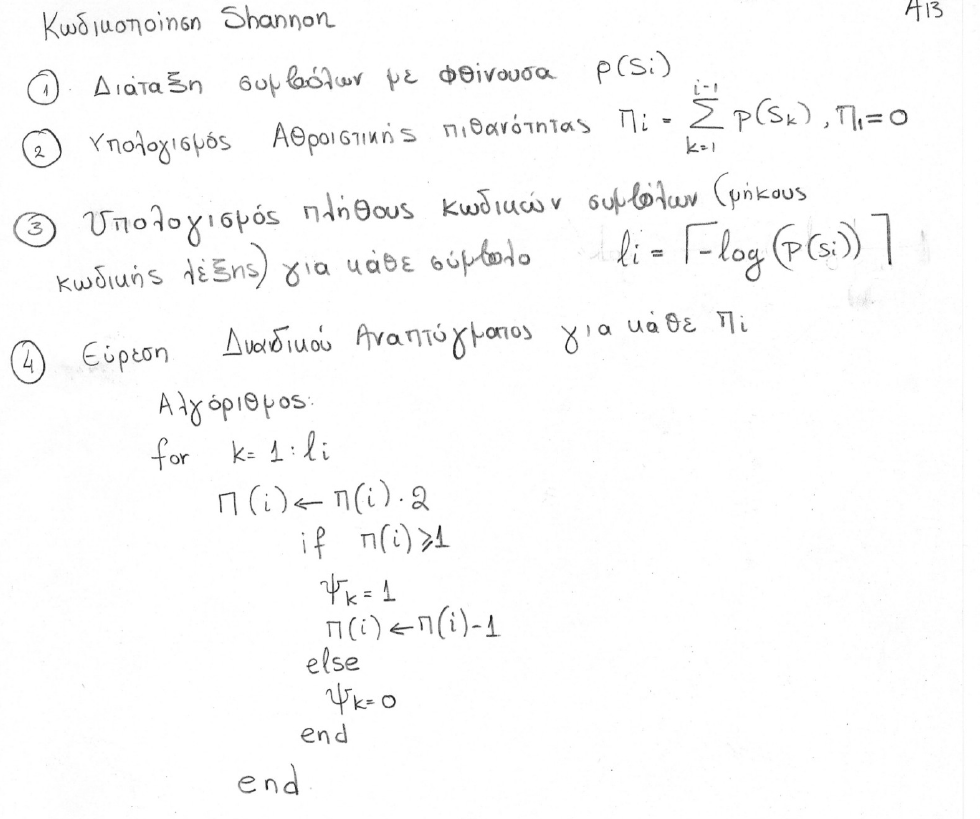 Α13
Κωδικοποίηση Shannon
① Διάταξη συμβόλων με φθίνουσα p(Si)
② Υπολογισμός Αθροιστικής πιθανότητας Πi = Σ_{k=1}^{i-1} p(Sk), Π1=0
③ Υπολογισμός πλήθους κωδικών συμβόλων (μήκους
κωδικής λέξης) για κάθε σύμβολο li = ⌈-log(p(si))⌉
④ Εύρεση Δυαδικού Αναπτύγματος για κάθε Πi
Αλγόριθμος:
for k= 1:li
Π(i) ← Π(i)·2
if Π(i)≥1
Ψk=1
Π(i) ← Π(i)-1
else
Ψk=0
end
end